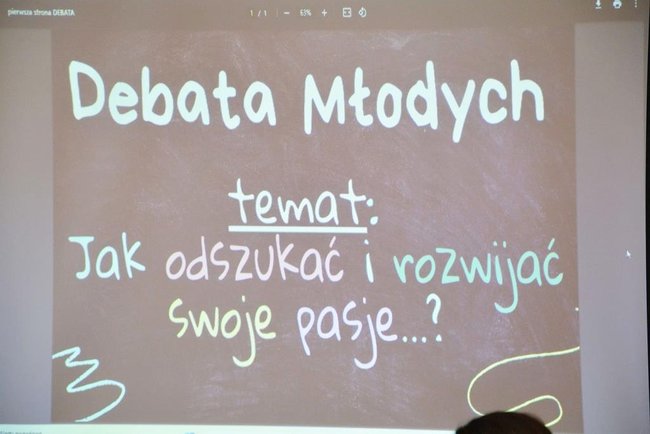 pierwsza strona DEBATA
1 / 1 − 63% +
Debata Młodych
temat:
Jak odszukać i rozwijać
swoje pasje...?